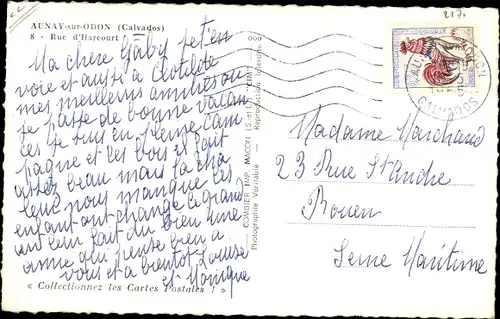 217.
AUNAY-sur-ODON (Calvados)
8 - Rue d'Harcourt
Ma chère Gaby je t'en
voie et aussi a Clotilde
mes meilleurs amities on
je passe de bonne vacan
ces je suis en pleine cam
pagne et les bois il fait
assez beau mais la cha
leur nous manque les
enfant ont change le grand
air leur fait du bien une
amie qui pense bien a
vous et a bientot Louise
et Monique
« Collectionnez les Cartes Postales ! »
COMBIER IMP. MACON (S.-et-L.) "CIM"
Photographie Véritable - Reproduction Interdite
CALVADOS
Madame Marchand
23 Rue St André
Rouen
Seine Maritime